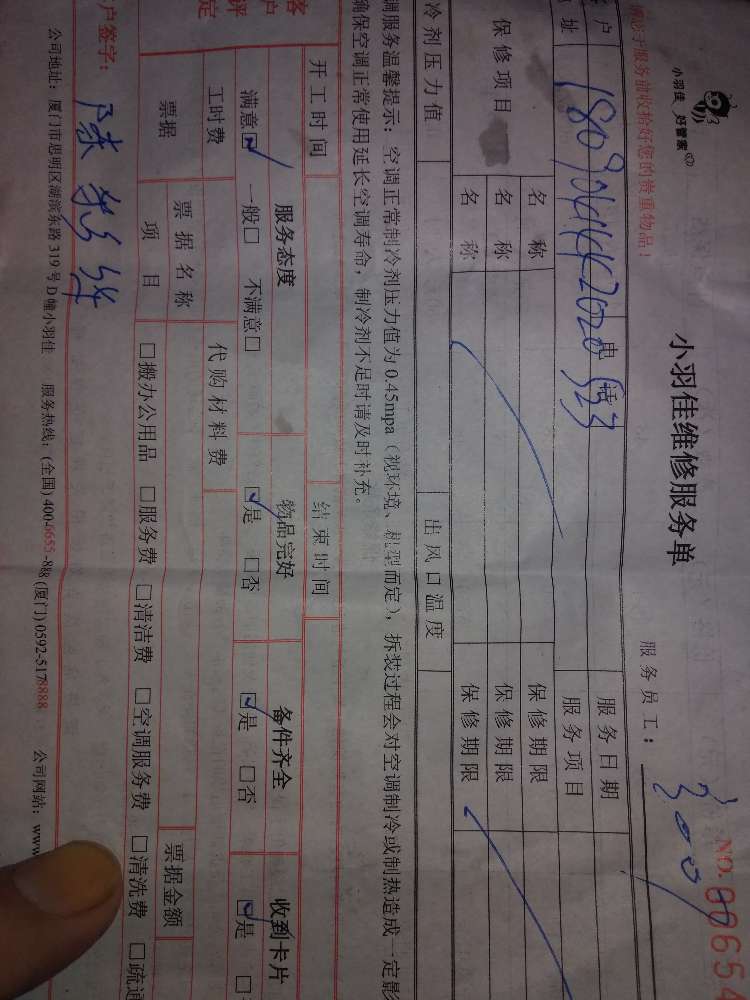 小羽佳 好管家
小羽佳维修服务单
NO. 00654
服务员工:
收拾好您的贵重物品!
户
电话
服务日期
址
服务项目
保修项目
名称
保修期限
名称
保修期限
名称
保修期限
冷剂压力值
出风口温度
调服务温馨提示:空调正常制冷剂压力值为0.45mpa(视环境、机型而定),拆装过程会对空调制冷或制热造成一定影
确保空调正常使用延长空调寿命,制冷剂不足时请及时补充。
开工时间
结束时间
客户评定
服务态度
物品完好
备件齐全
收到卡片
满意☑ 一般□ 不满意□
☑是 □否
☑是 □否
☑是 □
工时费
代购材料费
票据
票据名称
票据金额
项目
□搬办公用品 □服务费 □清洁费 □空调服务费 □清洗费 □疏通
户签字:
公司地址:厦门市思明区湖滨东路319号D幢小羽佳 服务热线:(全国)400-6655-888 (厦门)0592-5178888 公司网站:www